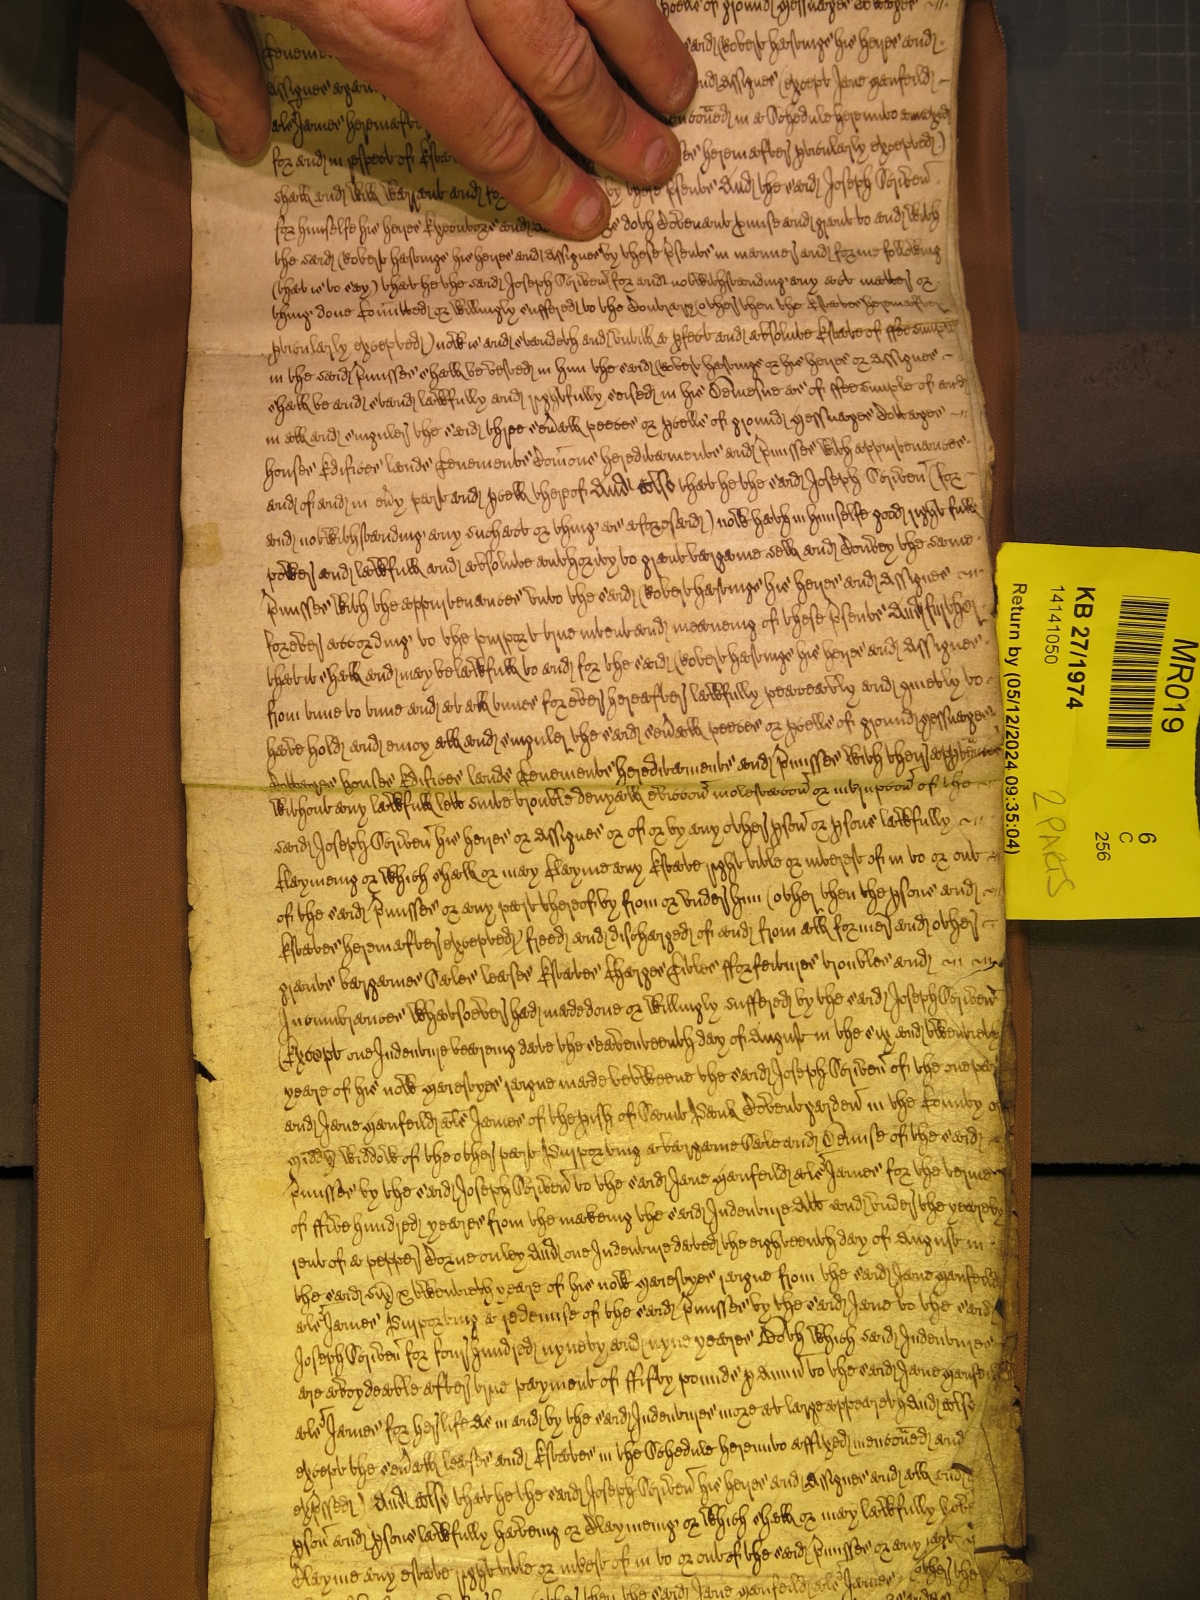 peells of ground Messuages Cottages
Tenem said Robert hastings his heires and
Assignes again and Assignes (except Jane Manfeild
als James hereinafter menconed in a Schedule hereunto annexed
for and in respect of Estat hereinafter pticularly excepted)
shall and will warrant and by these psents And the said Joseph Scriven
for himselfe his heires Executors and doth Covenant pmise and graunt to and with
the said Robert hastings his heires and assignes by these psents in manner and forme following
(that is to say) that he the said Joseph Scriven for and notwithstanding any act matter or
thing done Comitted or willingly suffered to the Contrary (other then the Estates hereinafter
pticularly excepted) now is and standeth and untill a pfect and absolute Estate of ffee simple
in the said pmisses shall be vested in him the said Robert hastings or his heires or Assignes
shall be and stand lawfully and rightfully seised in his Demesne as of ffee simple of and
in all and singuler the said three sevall peeces or pcells of ground Messuages Cottages
houses Edifices lands Tenements Comons hereditaments and pmisses with appurtenances
and of and in evy part and pcell thereof And also that he the said Joseph Scriven (for
and notwithstanding any such act or thing as aforesaid) now hath in himselfe good right full
power and lawfull and absolute authority to graunt bargaine sell and Convey the same
pmisses with the appurtenances unto the said Robert hastings his heires and Assignes
forever according to the purport true intent and meaneing of these psents And further
that it shall and may be lawfull to and for the said Robert hastings his heires and Assignes
from time to time and at all times forever hereafter lawfully peaceably and quietly to
have hold and enioy all and singuler the said sevall peeces or pcells of ground Messuages
Cottages houses Edifices lands Tenements hereditaments and pmisses with their appurtences
without any lawfull lett suite trouble denyall eviccon molestacon or interupcon of the
said Joseph Scriven his heires or Assignes or of or by any other pson or psons lawfully
Claymeing or which shall or may Clayme any Estate right title or interest of in to or out
of the said pmisses or any part thereof by from or under him (other then the psons and
Estates hereinafter excepted) freed and discharged of and from all former and other
graunts bargaines Sales leases Estates Charges Titles fforfeitures troubles and
Incumbrances whatsoever had made done or willingly suffered by the said Joseph Scriven
(Except one Indenture beareing date the seaventeenth day of August in the six and twentieth
yeare of his now Majestyes raigne made betweene the said Joseph Scriven of the one part
and Jane Manfeild als James of the pish of Saint Paul Covent garden in the County of
Midd widdow of the other part Purporting a bargaine Sale and Demise of the said
pmisses by the said Joseph Scriven to the said Jane Manfeild als James for the terme
of ffive hundred yeares from the makeing the said Indenture Att and under the yearely
rent of a pepper Corne onley And one Indenture dated the eighteenth day of August in
the said six & twentieth yeare of his now Majestyes raigne from the said Jane Manfeild
als James Purporting a redemise of the said pmisses by the said Jane to the said
Joseph Scriven for four hundred nynety and nyne yeares Both which said Indentures
are avoydeable after true payment of ffifty pounds p Annu to the said Jane Manfeild
als James for her life As in and by the said Indentures more at large appeareth And also
except the sevall leases and Estates in the Schedule hereunto affixed mencoed and
expressed) And also that he the said Joseph Scriven his heires and Assignes and all and
pson and psons lawfully haveing or Claymeing or which shall or may lawfully have
Clayme any estate right title or interest of in to or out of the said pmisses or any part
then the said Jane Manfeild als James other the